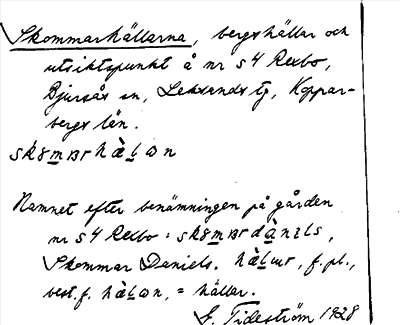 Skommarhällarna, bergshällar och
utsiktspunkt å nr s 4 Rexbo,
Bjursås sn, Leksands tg, Koppar-
bergs län.
sk8mɪɜrhæ̀lɷn
Namnet efter benämningen på gården
nr s 4 Rexbo: sk8mɪɜrdànɪls,
Skommar Daniels. hæ̀lɯr, f. pl.,
best. f. hæ̀lɷn, = hällar.
G. Tideström 1928